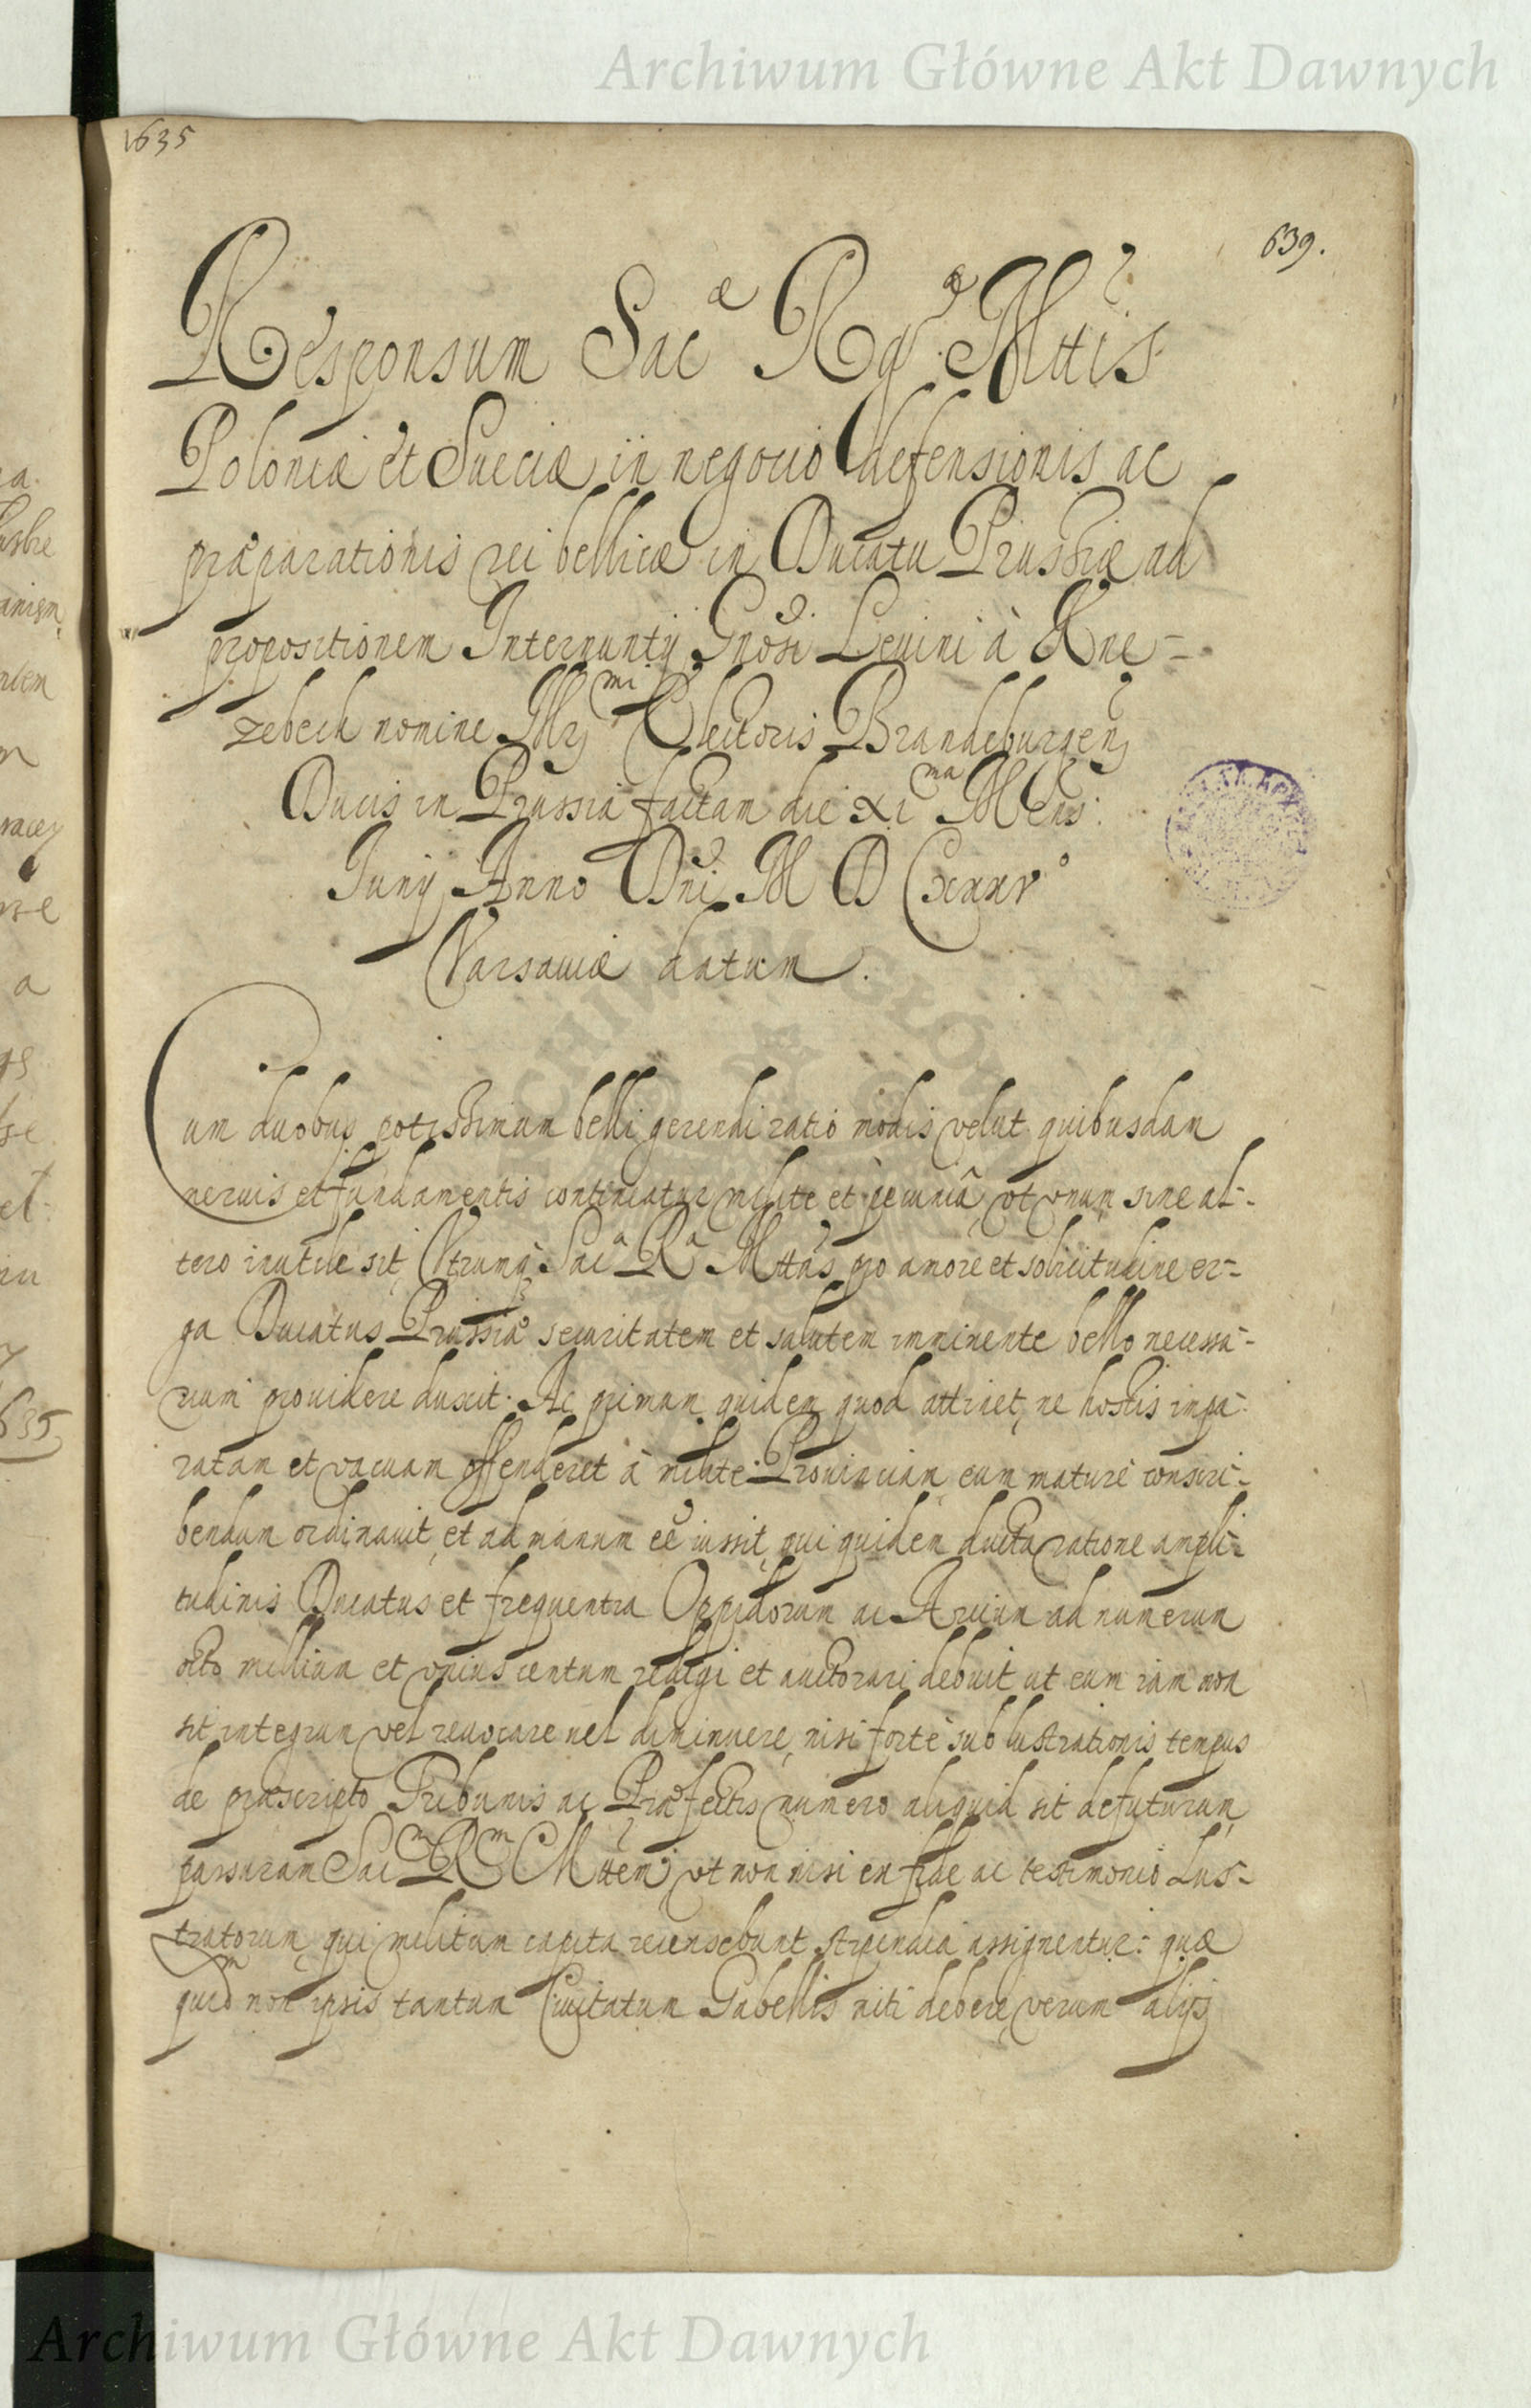 Archiwum Główne Akt Dawnych
1635
639.
Responsum Sacæ Rgæ Mttis
Poloniæ et Sueciæ in negocio defensionis ac
præparationis rei bellicæ in Ducatu Prussiæ ad
propositionem Internuntij Gnosi Leuini à Kne-
zebech nomine Illrmi Electoris Brandeburgen
Ducis in Prussia factam die XIma Mens:
Iunij Anno Dni M D Cxxxv°
Varsauiæ datum.
Cum duobus potissimum belli gerendi ratio modis velut quibusdam
neruis et fundamentis contineatur milite et pecuniâ, vt vnum sine al-
tero inutile sit, Vtrumq Saca Ra Mttas pro amore et solicitudine er-
ga Ducatus Prussiæ securitatem et salutem imminente bello necessa-
rium prouidere duxit. Ac primum quidem quod attinet, ne hostis impa-
ratam et vacuam offenderet à milite Prouinciam, eum mature conscri-
bendum ordinauit, et ad manum eē iussit, qui quidem ducta ratione ampli-
tudinis Ducatus et frequentia Oppidorum ac Arcium ad numerum
octo millium et vnius centum redigi et auctorari debuit ut eum iam non
sit integrum vel reuocare vel diminuere, nisi forte sub lustrationis tempus
de præscripto Tribunis ac Præfectis numero aliquid sit defuturum,
passuram Sacm Rm Mttem, vt non nisi ex fide ac testimonio Lus-
tratorum, qui militum capita recensebunt stipendia assignentur: quæ
quidm non ipsis tantum Ciuitatum Gabellis niti debere, verum alijs
Archiwum Główne Akt Dawnych